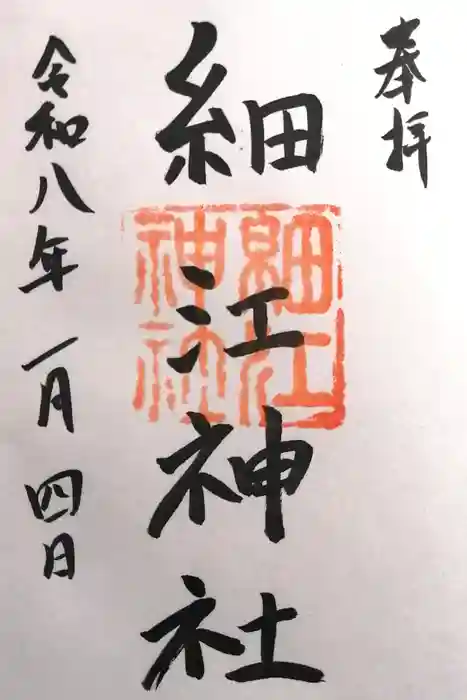 奉拝
細江神社
細江神社
令和八年一月四日